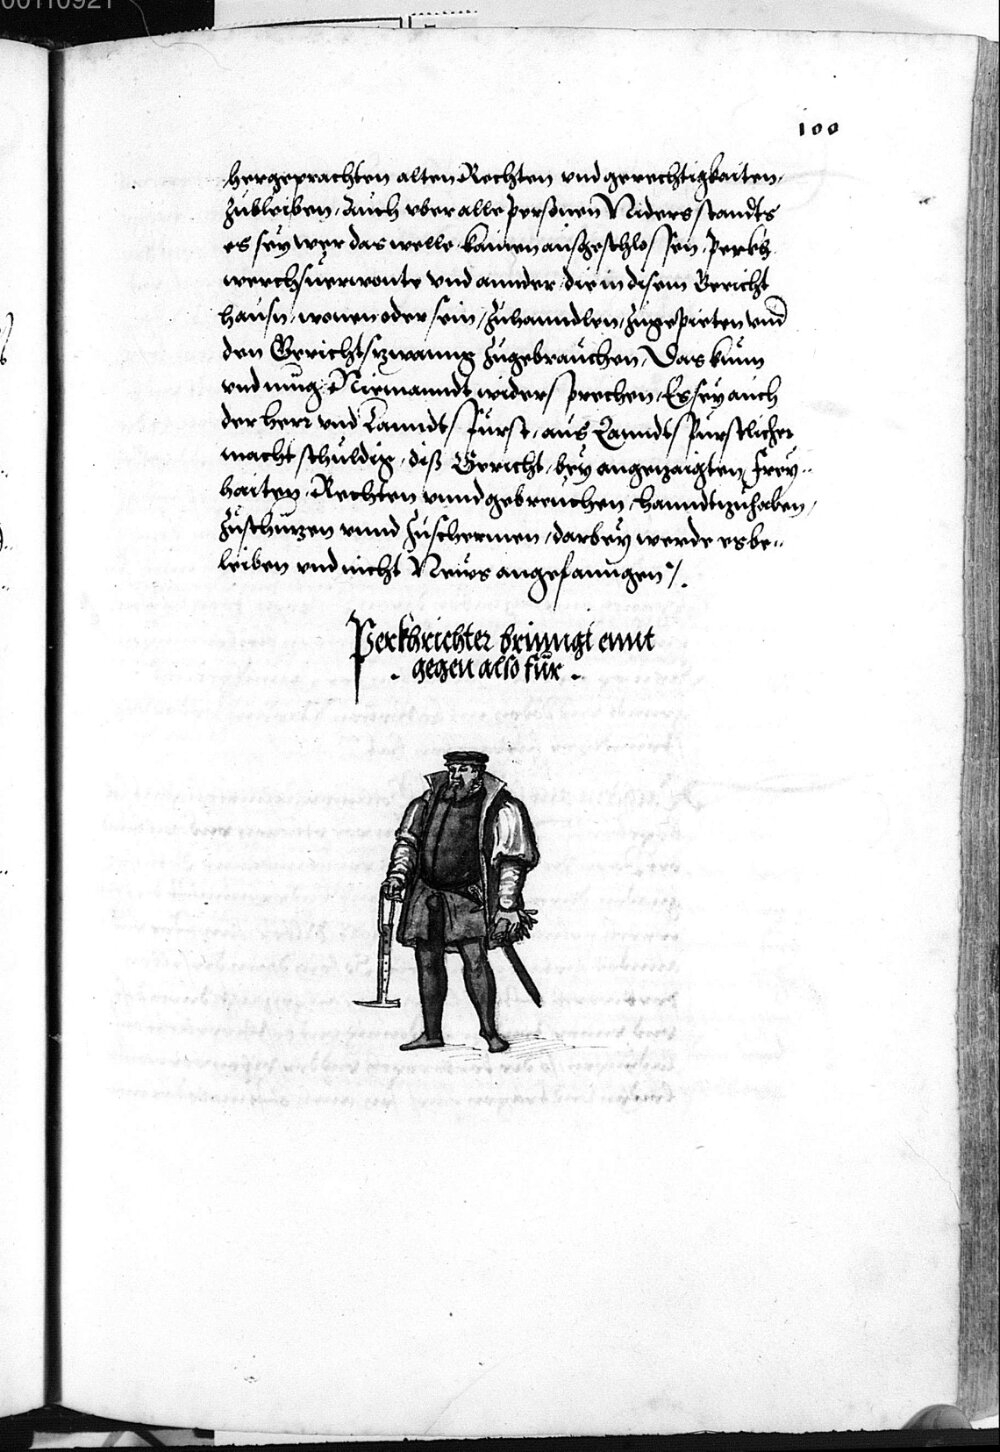 00110921
100
hergeprachten alten Rechten vnd gerechtigkaiten,
zubleiben, Auch vber alle personen Niders standts
es sey wer das welle kainen außgeschlossen, Perkh
werchsuerwonte vnd annder, die in disem Gericht
hausn, wonen oder sein, zuhanndlen, zugepieten vnd
den Gerichtszwanng zugebrauchen, Das kum
vnd mug Niemanndt widersprechen, Es sey auch
der Herr vnd Lanndtsfürst, aus Lanndtsfürstlicher
macht schuldig, diß Gericht, bey angezaigten, Frey-
haiten, Rechten vnnd gebreuchen, hanndtzuhaben,
zuschützen vnnd zuschermen, darbey werde es be-
leiben vnd nicht Neues angefanngen /.
Perkhrichter brinngt ennt
. gegen also für .